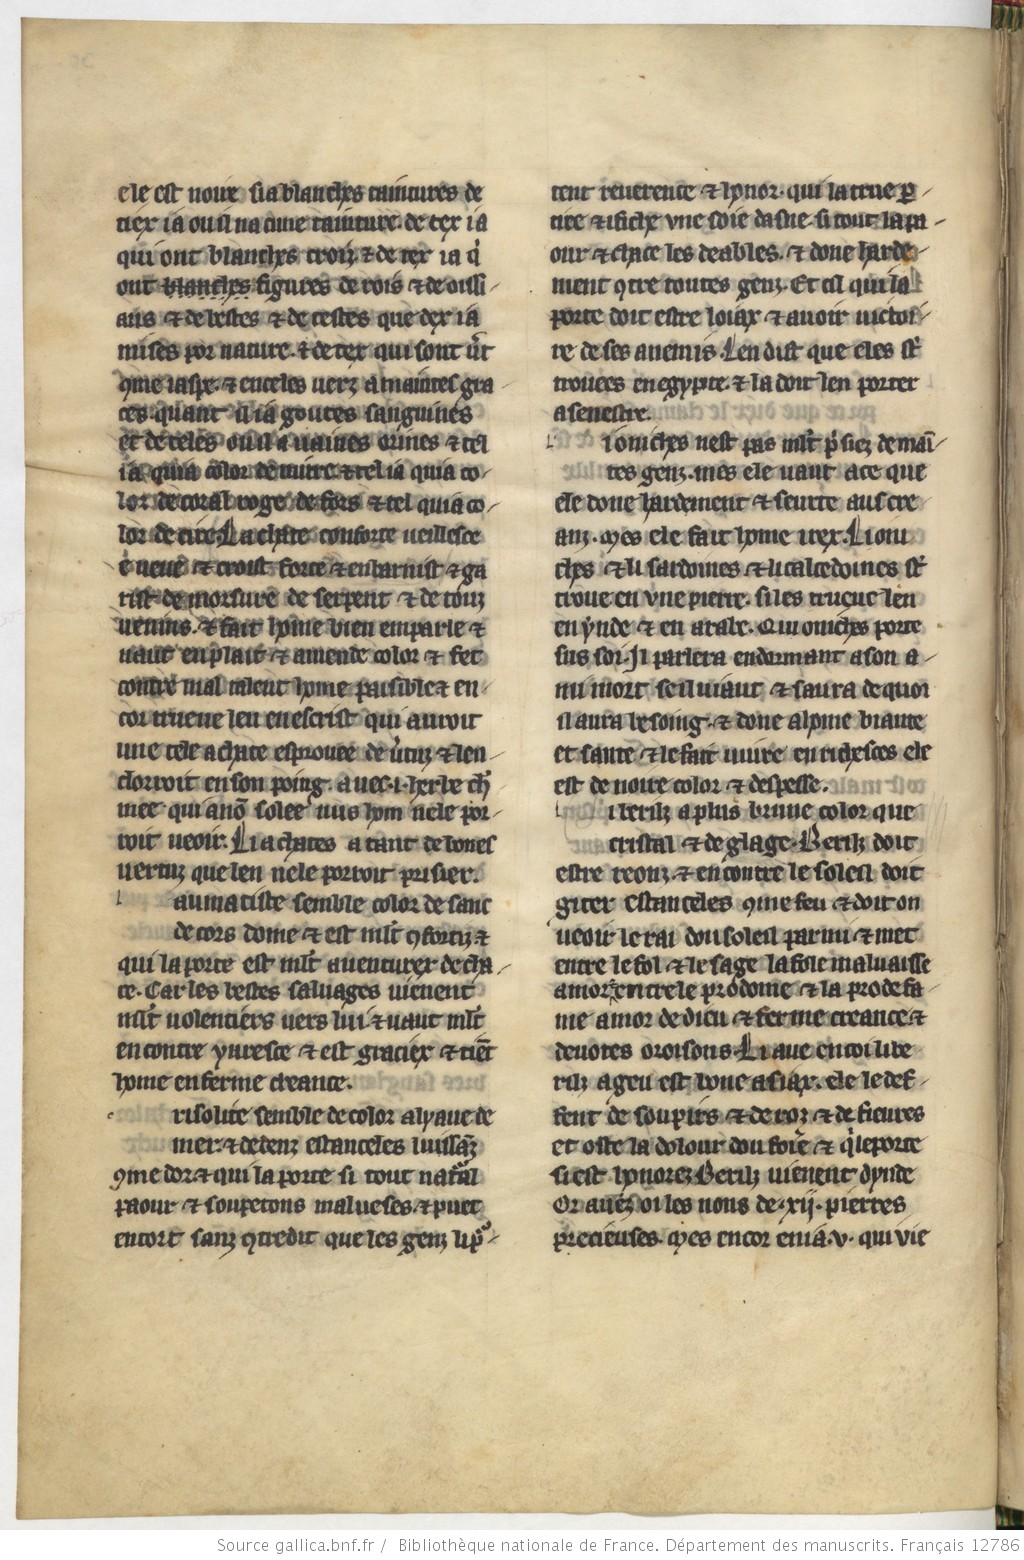 ele est noire si a blanches taintures de
tiex i a ou il na cune tainture. de tex i a
qui ont blanches croiz. ⁊ de tex i a qͥ
ont blanches figures de rois ⁊ de oissi-
aus ⁊ de bestes ⁊ de testes que dex i a
mises por nature. ⁊ de tex qui sont ũt
ꝯme iaspe. ⁊ en celes verz a maintes gra
ces. quant il i a goutes sanguines
et de celes ou il a uaines orines ⁊ tel
i a qui a color de cuiure ⁊ tel i a qui a co-
lor de coral roge de fors ⁊ tel qui a co-
lor de cire. La chate conforte ueillesce
⁊ croist force ⁊ enbarnist ⁊ ga
rist de morsure de serpent ⁊ de touz
uenins. ⁊ fait home bien emparle ⁊
uaut en plait ⁊ amende color ⁊ fet
contre mal talent home paisible ⁊ en-
cor trueue len en escrist qui auroit
une tele achate esprouee de ũtuz ⁊ len
clorroit en son poing. auec .i. herbe ch̾
mee qui a nõ solee nus hom ne le por-
roit ueoir. Li achates a tant de bones
uertuz que len ne le porroit prisier.
l aumatiste semble color de sanc
de cors dome ⁊ est ml̃t ꝯfortz ⁊
qui la porte est ml̃t auenturex de cha-
ce. Car les bestes saluages uienent
ml̃t uolentiers uers lui ⁊ uaut ml̃t
encontre yuresce ⁊ est graciex ⁊ tiẽt
home en ferme creance.
c risolite semble de color a lyaue de
mer. ⁊ dedenz estanceles luissãz
ꝯme dor. ⁊ qui la porte si tout natãl
paour ⁊ soupetons malueses. ⁊ puet
entort sanz ꝯtredit que les genz li pͦ-
tent reuerence ⁊ honor. qui la treue ꝑ-
tice ⁊ ifiche vne soie dasne. si tout la pa
our ⁊ chace les deables. ⁊ done harde-
ment ꝯtre toutes genz. Et cil qui la
porte doit estre loiax ⁊ auoir uictoi-
re de ses anemis. Len dist que eles st̾
trouees en egypte. ⁊ la doit len porter
a senestre.
l i oniches nest pas ml̃t p̾siez de mai-
tes genz. mes ele uaut a ce que
ele done hardement ⁊ seurte aus cre
anz. Mes ele fait home irex. Li oni
ches ⁊ li sardoines ⁊ li calcedoines st̾
troue en vne pierre. si les trueue len
en ynde ⁊ en arabe. Qui oniches porte
sus soi. Il parlera en dormant a son a-
mi mort se il uiaut ⁊ saura de quoi
il aura besoing. ⁊ done alome biaute
et sante ⁊ le fait uiure en richesces ele
est de noire color ⁊ despesse.
l i beriz a plus brune color que
cristal ⁊ de glage. Beriz doit
estre reonz. ⁊ en contre le soleil doit
giter estanceles ꝯme feu ⁊ doit on
ueoir le rai dou soleil parmi ⁊ met
entre le fol ⁊ le sage la fole maluaisse
amor. entre le prodome ⁊ la prode fa-
me amor de dieu ⁊ ferme creance ⁊
deuotes oroisons. Li aue en coi li be
riz a geu est bone a siax. ele le def-
fent de soupirs ⁊ de roz ⁊ de fieures
et oste la dolour dou foie ⁊ qͥ le porte
si est honorez Beriz uienent dynde
Or auez oi les nons de .xij. pierres
precieuses. Mes encor en i a .v. qui vie